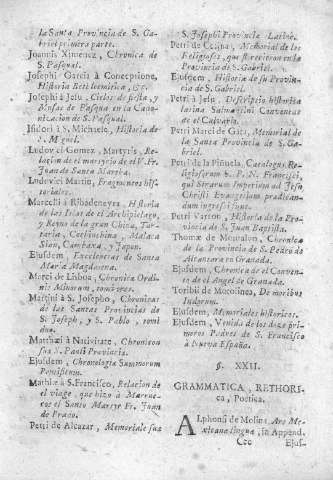 la Santa Provincia de S. Gabriel primera parte.
Joannis Ximenez, Chronica de
S. Pasqual.
Josephi Garcia à Conceptione,
Historia Bethleemitica, &c.
Josephi à Jesu, Cielos de fiesta, y
Musas de Pasqua en la Canonizacion
de S. Pasqual.
Isidori à S. Michaele, Historia de
S. Miguel.
Ludovici Gomez, Martyris, Relacion
de el martyrio de el V. Fr.
Juan de Santa Martha.
Ludovici Martin, Fragmentos historiales.
Marcelli à Ribadeneyra, Historia
de las Islas de el Archipielago,
y Reyno de la gran China, Tartaria,
Cochinchina, Malaca
Sian, Camboxa, y Japon.
Ejusdem, Excelencias de Santa
Maria Magdalena.
Marci de Lisboa, Chronica Ordinis
Minorum,
Martini à S. Josepho, Chronicas
de las Santas Provincias de
S. Joseph, y S. Pablo,
Matthæi à Nativitate, Chronicon
suæ S. Pauli Provinciæ.
Ejusdem, Chronologia Summorum
Pontificum.
Mathiæ à S. Francisco, Relacion de
el viage, que hizo à Marruecos
el Santo Martyr Fr. Juan
de Prado.
Petri de Alcazar, Memoriale suæ
S. Josephi Provinciæ Latinè.
Petri de Memorial de los
Religiosos, que florecieron en la
Provincia de S. Gabriel.
Ejusdem, Historia de su Provincia
de S. Gabriel.
Petri à Jesu, Descriptio historica
latina Salmantini Conventus
de el Calvario.
Petri Marcel de Gata, Memorial de
la Santa Provincia de S. Gabriel.
Petri de la Piñuela, Catalogus Religiosorum
S. P. N. Francisci,
qui Sinarum Imperium ad Jesu
Christi Evangelium prædicandum
ingressi sunt.
Petri Historia de la Provincia
de S. Juan Baptista.
Thomæ de Montalvo, Chronica
de la Provincia de S. Pedro de
Alcantara en Granada.
Ejusdem, Chronica de el Convento
de el Angel de Granada.
Toribii de Motolinea, De moribus
Indorum.
Ejusdem, Memoriales historicos.
Ejusdem, Venida de los doze primeros
Padres de S. Francisco
à Nueva España.
§. XXII.
GRAMMATICA, RETHORICA,
Poetica.
Alphonsi de Molina, Ars Mexicana
lingua, in Append.
Ccc Ejus-